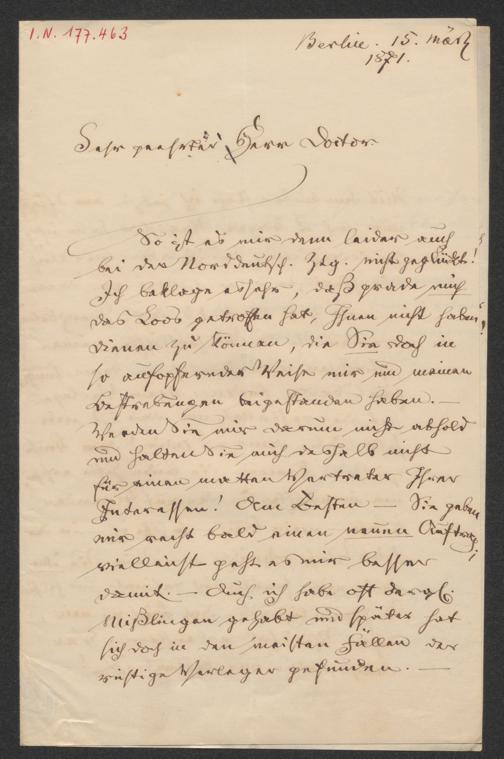 I.N. 177.463
Berlin. 15. März
1871.
Sehr geehrter Herr Doctor.
So ist es mir denn leider auch
bei der Norddeutsch. Ztg. nicht geglückt!
Ich beklage es sehr, daß grade mich
das Loos getroffen hat, Ihnen nicht haben
dienen zu können, die Sie doch in
so aufopfernder Weise mir und meinen
Bestrebungen beigestanden haben. —
Werden Sie mir darum nicht abhold
und halten Sie mich deshalb nicht
für einen matten Vertreter Ihrer
Interessen! Am Besten — Sie geben
mir recht bald einen neuen Auftrag,
vielleicht geht es mir besser
damit. — Auch ich habe oft dergl.
Mißlingen gehabt und später hat
sich doch in den meisten Fällen der
richtige Verleger gefunden. —